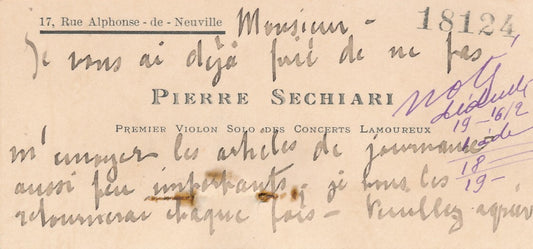 17, Rue Alphonse - de - Neuville
Monsieur -
18124
Je vous ai déjà prié de ne pas
PIERRE SECHIARI
PREMIER VIOLON SOLO DES CONCERTS LAMOUREUX
m'envoyer les articles de journaux
aussi peu importants, je vous les
retournerai chaque fois - Veuillez agréer
noté
19-16/2
18
19-